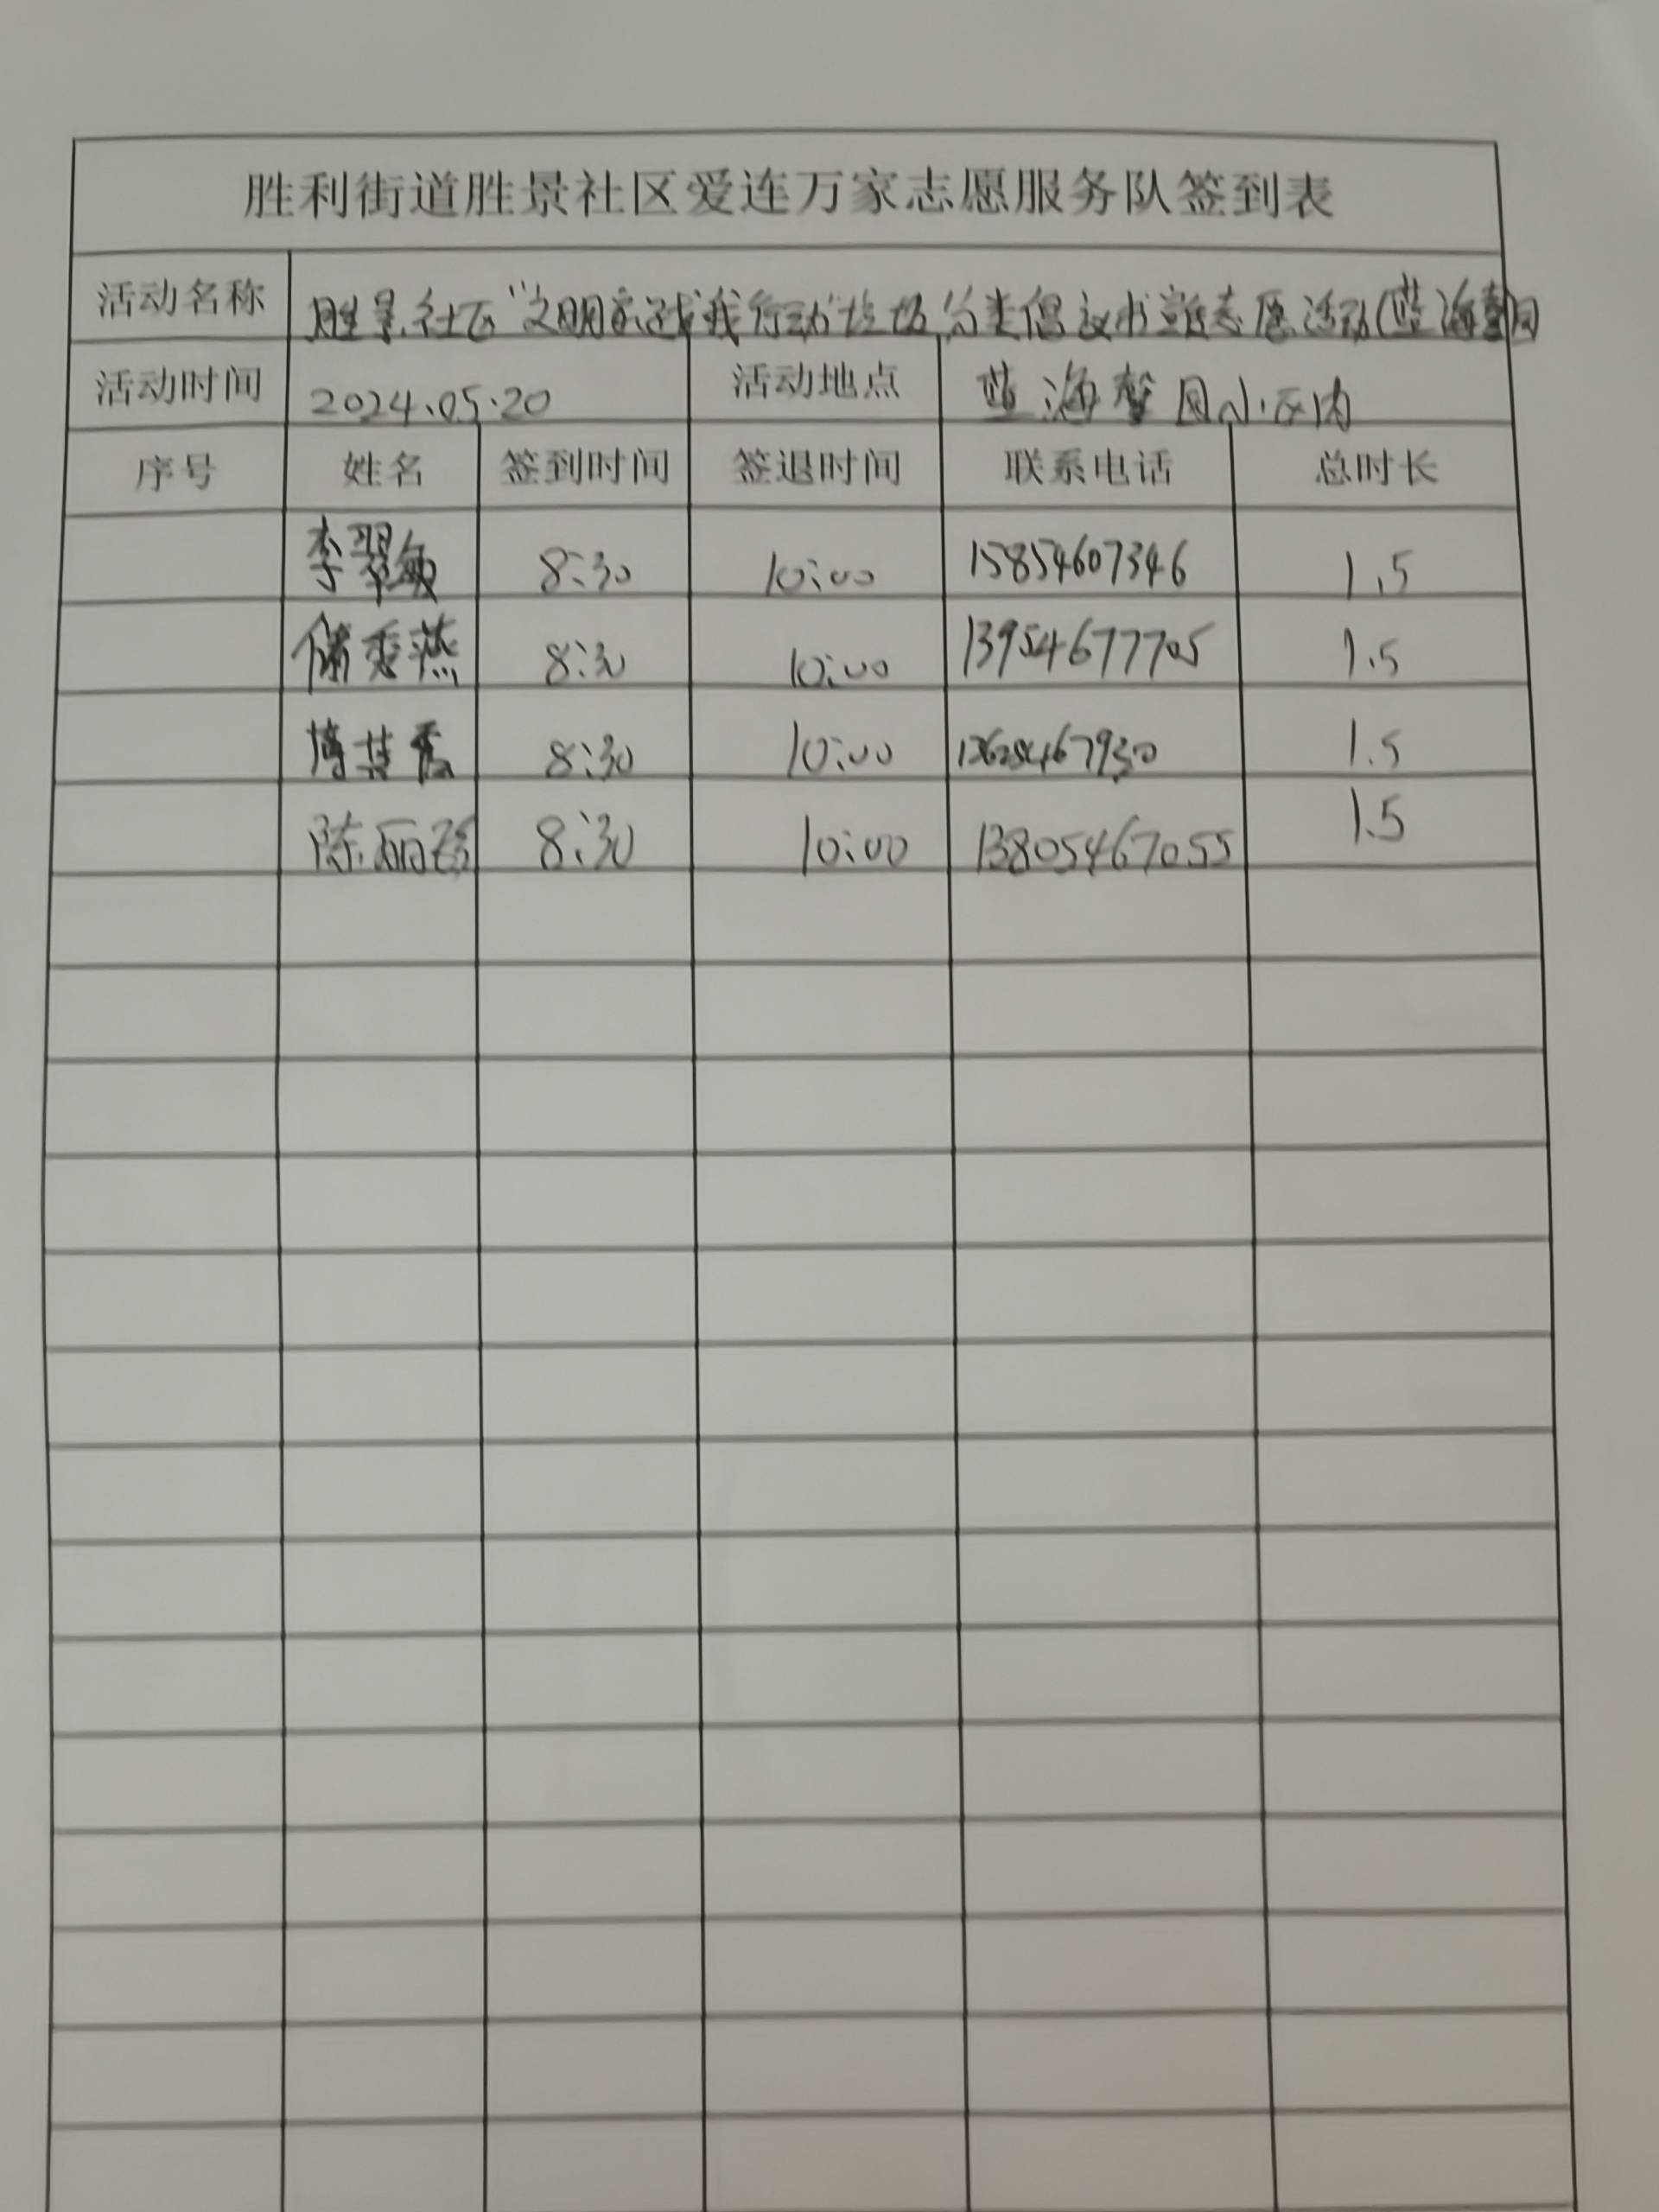 胜利街道胜景社区爱连万家志愿服务队签到表
活动名称 胜景社区“文明实践我行动”垃圾分类倡议书宣传志愿活动(蓝海馨园
活动时间 2024.05.20 活动地点 蓝海馨园小区内
序号 姓名 签到时间 签退时间 联系电话 总时长
李翠敏 8:30 10:00 15854607346 1.5
储秀燕 8:30 10:00 13954677705 1.5
8:30 10:00 1.5
陈丽 8:30 10:00 13805467055 1.5